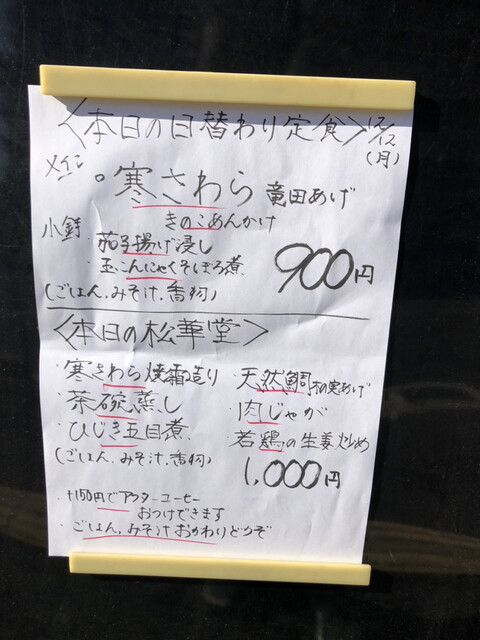 〈本日の日替わり定食〉12/12
(月)
メイン
・寒さわら 竜田あげ
きのこあんかけ
小鉢
茄子揚げ浸し
・玉こんにゃくそぼろ煮
900円
(ごはん、みそ汁、香物)
〈本日の松華堂〉
・寒さわら焼霜造り
・茶碗蒸し
・ひじき五目煮
(ごはん、みそ汁、香物)
・天然鯛木の実あげ
・肉じゃが
若鶏の生姜炒め
1,000円
+150円でアフターコーヒー
おつけできます
・ごはん、みそ汁おかわりどうぞ